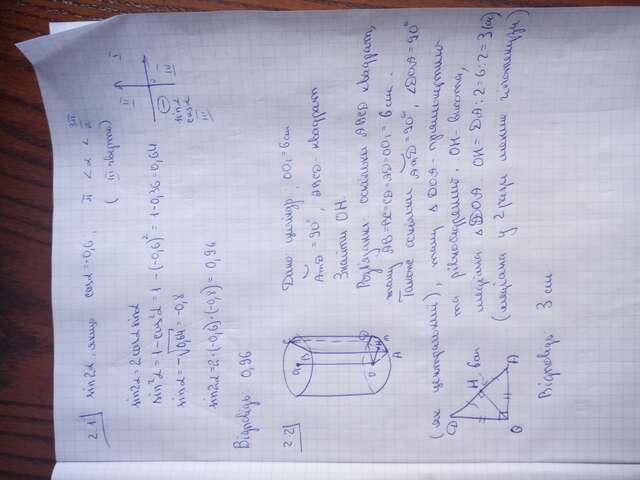 2.1) sin2α, якщо cosα=-0,6, π < α < 3π/2
( III чверть)
sin2α = 2cosα sinα
sin²α = 1-cos²α = 1-(-0,6)² = 1-0,36=0,64
sinα = -√0,64 = -0,8
sin2α = 2·(-0,6)·(-0,8) = 0,96
Відповідь: 0,96
II I
III IV
sinα
cosα
2.2)
Дано циліндр, OO₁=6см
AmD = 90°, ABCD - квадрат
Знайти OH.
Розв'язання: оскільки ABCD квадрат,
тому AB=BC=CD=AD=OO₁=6см.
Також оскільки AmD=90°, ∠DOA=90°
(як центральний), тому Δ DOA - прямокутний
та рівнобедрений, OH - висота,
медіана ΔDOA. OH = DA:2=6:2=3(см)
(медіана у 2 рази менша гіпотенузи)
D H 6см A
O
Відповідь: 3 см